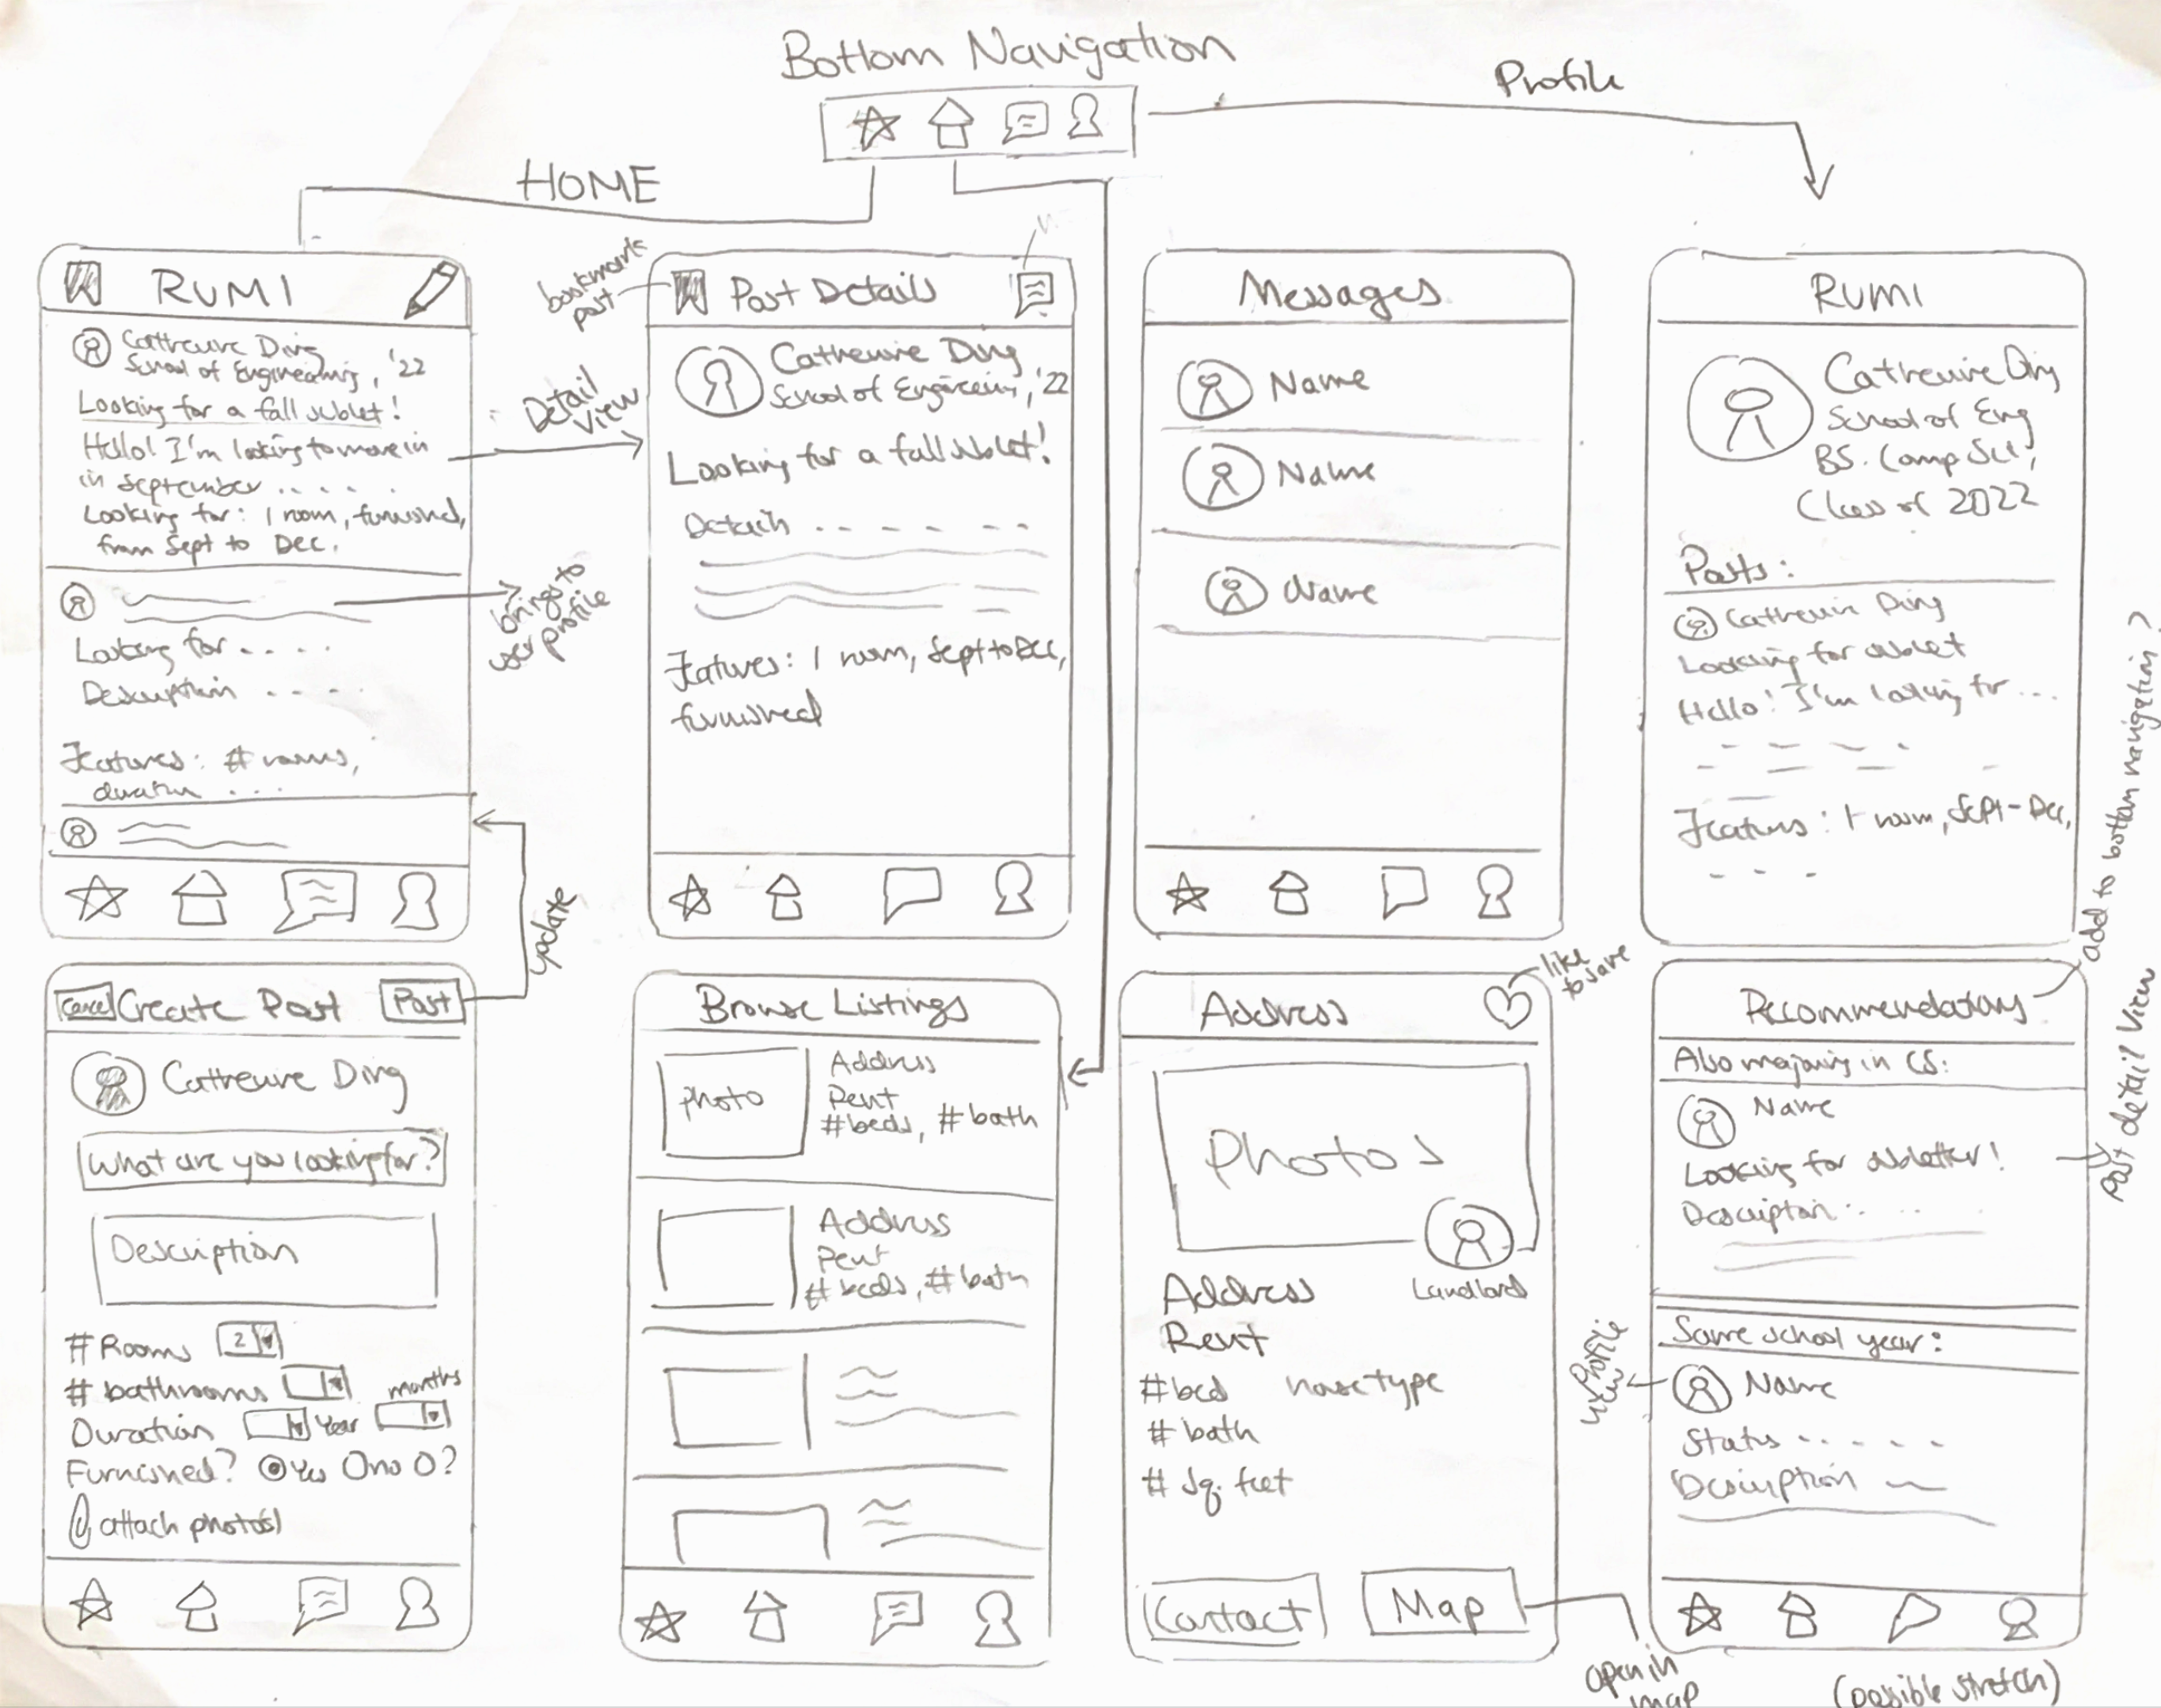 Bottom Navigation
Profile
HOME
RUMI
Catherine Ding
School of Engineering, '22
Looking for a fall sublet!
Hello! I'm looking to move in
in September . . . . .
Looking for: 1 room, furnished,
from Sept to Dec.
Looking for . . . .
Description . . . .
Features: # rooms,
duration . . .
bookmark
post
Detail
View
brings to
user profile
update
Post Details
Catherine Ding
School of Engineering, '22
Looking for a fall sublet!
Details . . . . . .
Features: 1 room, Sept to Dec,
furnished
Messages
Name
Name
Name
RUMI
Catherine Ding
School of Eng
BS. Comp Sci,
Class of 2022
Posts:
Catherine Ding
Looking for sublet
Hello! I'm looking for ...
Features: 1 room, Sept-Dec,
- - -
add to bottom navigation?
Cancel Create Post Post
Catherine Ding
What are you looking for?
Description
# Rooms 2
# bathrooms
months
Duration Year
Furnished? Yes no ?
attach photo(s)
Browse Listings
photo
Address
Rent
# beds, # bath
Address
Rent
# beds, # bath
Address
like
to save
Photos
Landlord
Address
Rent
# bed house type
# bath
# sq. feet
Contact Map
open in
map
Recommendations
Also majoring in CS:
Name
Looking for subletter!
Description . . .
Same school year:
Name
Status . . . . .
Description
Profile
View
Post detail View
(possible stretch)